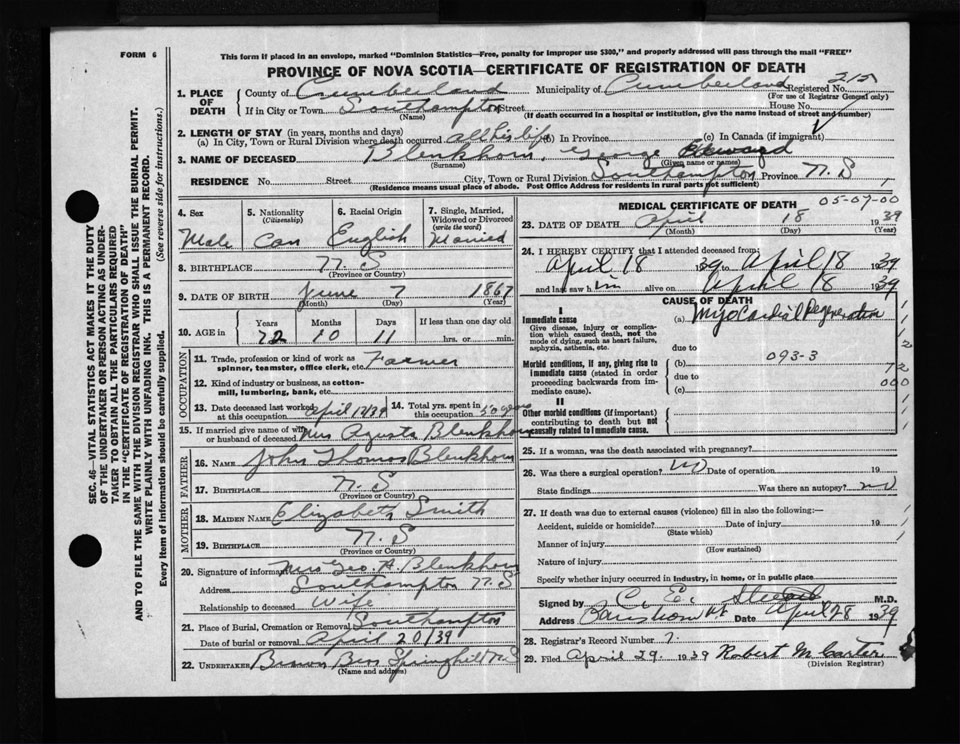 FORM 6
This form if placed in an envelope, marked "Dominion Statistics—Free, penalty for improper use $300," and properly addressed will pass through the mail "FREE"
PROVINCE OF NOVA SCOTIA—CERTIFICATE OF REGISTRATION OF DEATH
SEC. 46—VITAL STATISTICS ACT MAKES IT THE DUTY
OF THE UNDERTAKER OR PERSON ACTING AS UNDER-
TAKER TO OBTAIN ALL THE PARTICULARS REQUIRED
IN THE "CERTIFICATE OF REGISTRATION OF DEATH"
AND TO FILE THE SAME WITH THE DIVISION REGISTRAR WHO SHALL ISSUE THE BURIAL PERMIT.
WRITE PLAINLY WITH UNFADING INK. THIS IS A PERMANENT RECORD.
Every item of information should be carefully supplied. (See reverse side for instructions.)
1. PLACE OF DEATH County of Cumberland Municipality of Cumberland Registered No. 212
(For use of Registrar General only)
If in City or Town Southampton Street House No.
(Name) (If death occurred in a hospital or institution, give the name instead of street and number)
2. LENGTH OF STAY (in years, months and days)
(a) In City, Town or Rural Division where death occurred all his life (b) In Province (c) In Canada (if immigrant)
3. NAME OF DECEASED Blenkhorn, George
(Surname) (Given name or names)
RESIDENCE No. Street City, Town or Rural Division Southampton Province N.S
(Residence means usual place of abode. Post Office Address for residents in rural parts not sufficient)
4. Sex Male
5. Nationality (Citizenship) Can
6. Racial Origin English
7. Single, Married, Widowed or Divorced (write the word) Married
8. BIRTHPLACE N.S
(Province or Country)
9. DATE OF BIRTH June 7 1867
(Month) (Day) (Year)
10. AGE in Years Months Days If less than one day old
72 10 11 hrs. or min.
OCCUPATION
11. Trade, profession or kind of work as spinner, teamster, office clerk, etc. Farmer
12. Kind of industry or business, as cotton-mill, lumbering, bank, etc.
13. Date deceased last worked at this occupation April 12/39
14. Total yrs. spent in this occupation 50 years
15. If married give name of wife or husband of deceased Mrs Agusta Blenkhorn
FATHER
16. Name John Thomas Blenkhorn
17. BIRTHPLACE N.S
(Province or Country)
MOTHER
18. MAIDEN NAME Elizabeth Smith
19. BIRTHPLACE N.S
(Province or Country)
20. Signature of informant Mrs Geo. A. Blenkhorn
Address Southampton N.S
Relationship to deceased Wife
21. Place of Burial, Cremation or Removal Southampton
Date of burial or removal April 20/39
22. UNDERTAKER Brown Bros Springhill N.S
(Name and address)
MEDICAL CERTIFICATE OF DEATH 05-07-00
23. DATE OF DEATH April 18 1939
(Month) (Day) (Year)
24. I HEREBY CERTIFY that I attended deceased from:
April 18 1939 to April 18 1939
and last saw him alive on April 18 1939
CAUSE OF DEATH
I
Immediate cause
Give disease, injury or complication which caused death, not the mode of dying, such as heart failure, asphyxia, asthenia, etc.
(a) Myocardial Degeneration
due to
Morbid conditions, if any, giving rise to immediate cause (stated in order proceeding backwards from immediate cause).
(b) 093-3
due to
(c)
72
000
II
Other morbid conditions (if important) contributing to death but not causally related to immediate cause.
25. If a woman, was the death associated with pregnancy?
26. Was there a surgical operation? no Date of operation 19
State findings Was there an autopsy? no
27. If death was due to external causes (violence) fill in also the following:—
Accident, suicide or homicide? Date of injury 19
(State which)
Manner of injury
(How sustained)
Nature of injury
Specify whether injury occurred in industry, in home, or in public place
Signed by C. E. M.D.
Address Date April 28 1939
28. Registrar's Record Number 7.
29. Filed April 29. 1939 Robert M Carter
(Division Registrar)